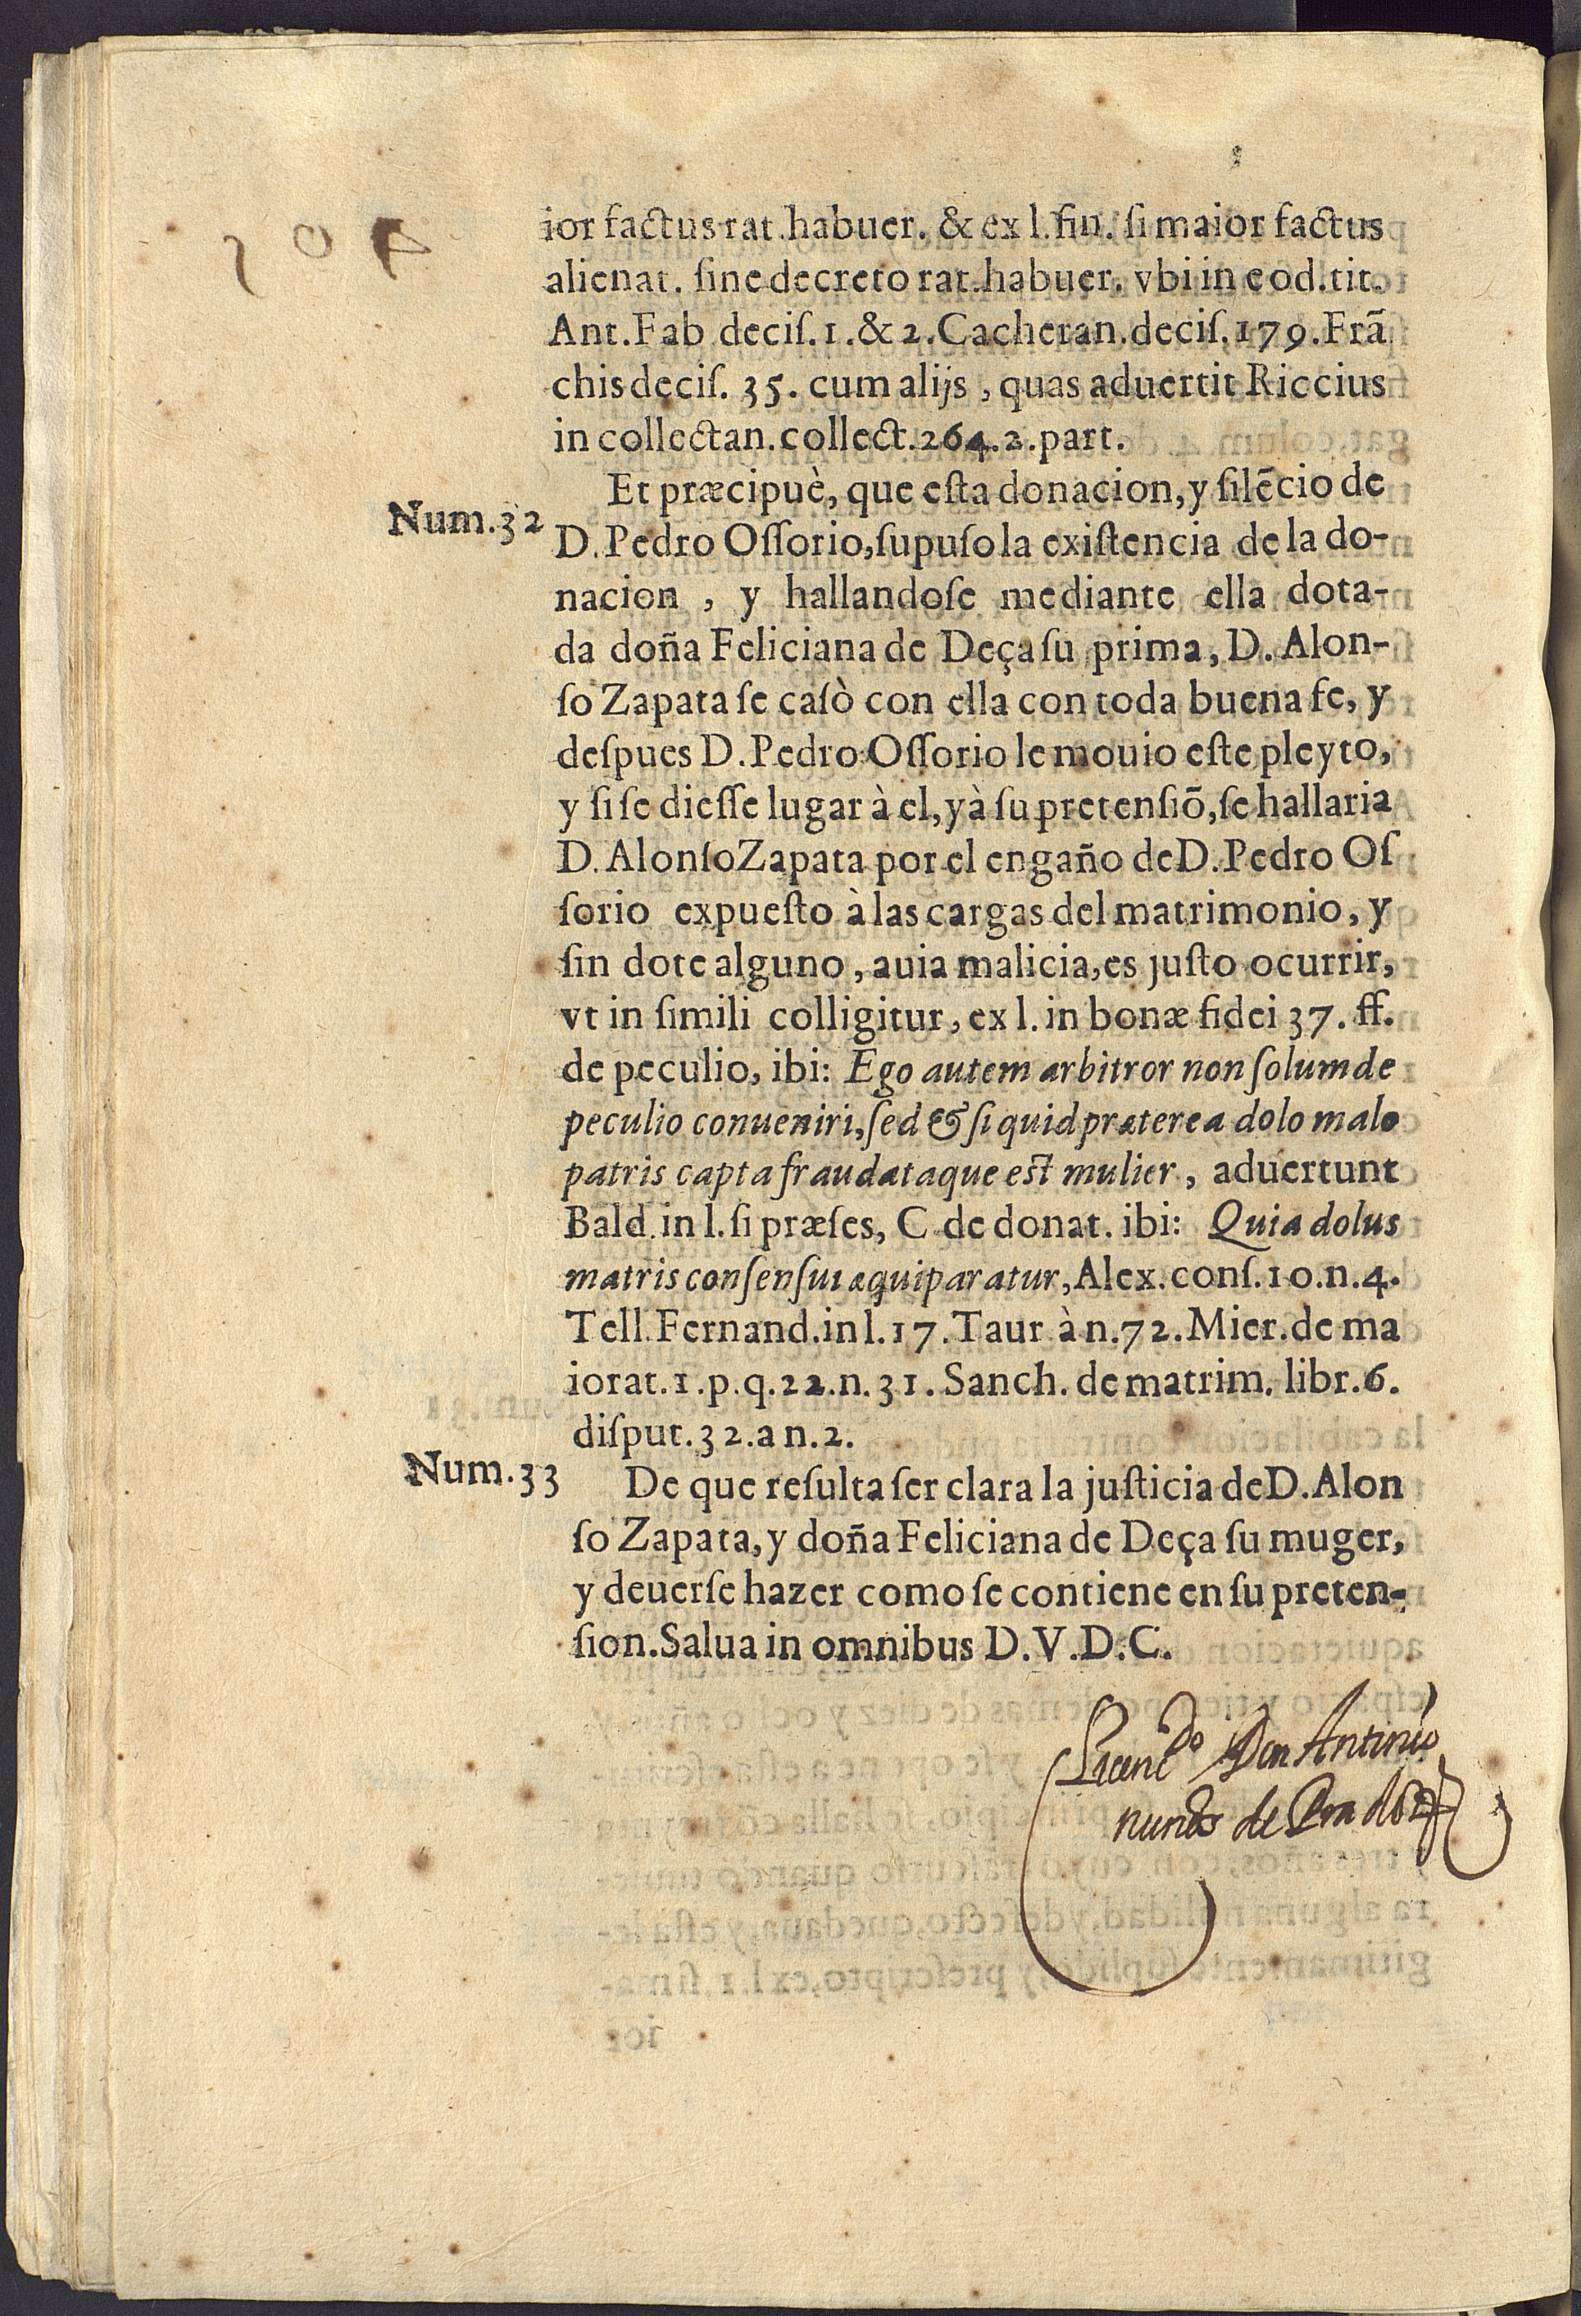 ior factus rat. habuer. & ex l. fin. ſi maior factus
alienat. ſine decreto rat. habuer. vbi in eod. tit.
Ant. Fab deciſ. 1. & 2. Cacheran. deciſ. 179. Frã
chis deciſ. 35. cum alijs, quas aduertit Riccius
in collectan. collect. 264. 2. part.
Num. 32
Et præcipuè, que eſta donacion, y ſilẽcio de
D. Pedro Oſſorio, ſupuſo la exiſtencia de la do-
nacion, y hallandoſe mediante ella dota-
da doña Feliciana de Deça ſu prima, D. Alon-
ſo Zapata ſe casò con ella con toda buena fe, y
deſpues D. Pedro Oſſorio le mouio eſte pleyto,
y ſi ſe dieſſe lugar à el, y à ſu pretenſiõ, ſe hallaria
D. Alonſo Zapata por el engaño de D. Pedro Oſ
ſorio expueſto à las cargas del matrimonio, y
ſin dote alguno, auia malicia, es juſto ocurrir,
vt in ſimili colligitur, ex l. in bonæ fidei 37. ff.
de peculio, ibi: Ego autem arbitror non ſolum de
peculio conueniri, ſed & ſi quid præterea dolo malo
patris capta fraudataque eſt mulier, aduertunt
Bald. in l. ſi præſes, C de donat. ibi: Quia dolus
matris conſenſui æquiparatur, Alex. conſ. 10. n. 4.
Tell. Fernand. in l. 17. Taur à n. 72. Mier. de ma
iorat. 1. p. q. 22. n. 31. Sanch. de matrim. libr. 6.
diſput. 32. a n. 2.
Num. 33
De que reſulta ſer clara la juſticia de D. Alon
ſo Zapata, y doña Feliciana de Deça ſu muger,
y deuerſe hazer como ſe contiene en ſu preten-
ſion. Salua in omnibus D. V. D. C.
Licen do Don Antinio
nunes de Prado